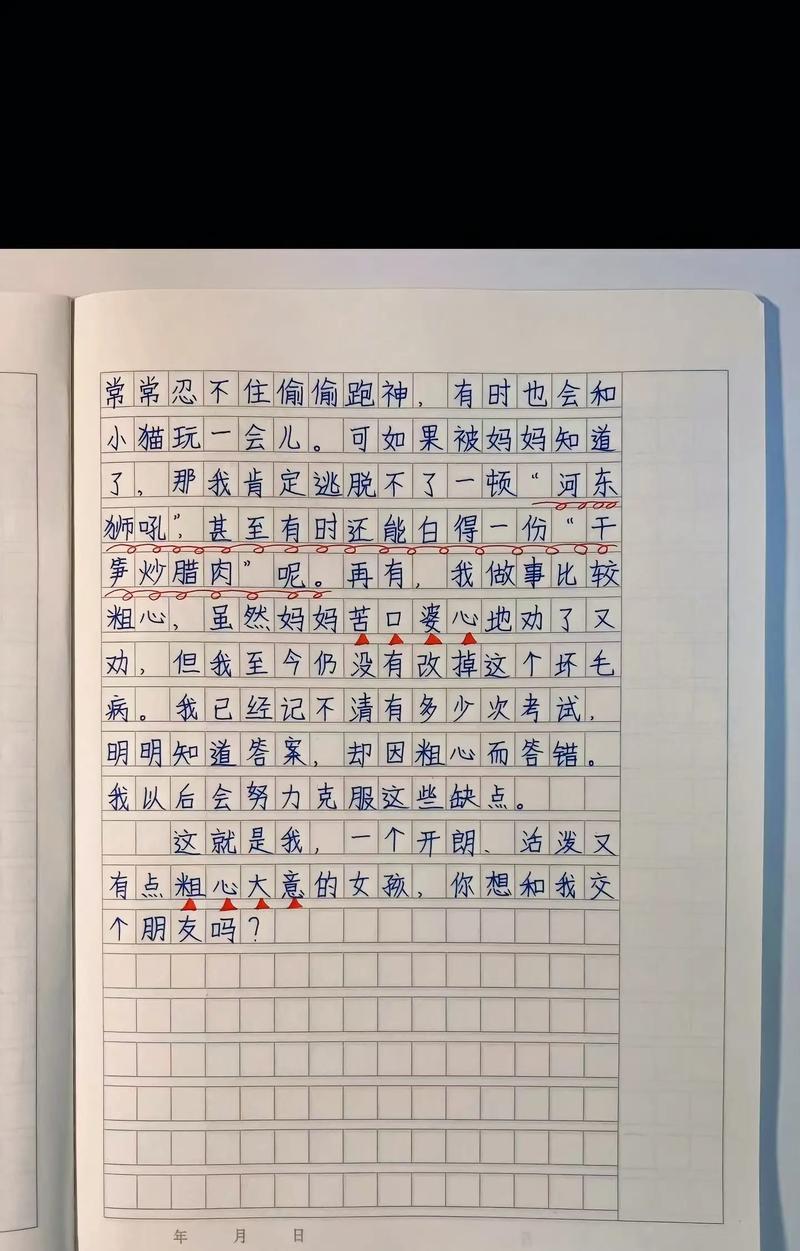 常常忍不住偷偷跑神，有时也会和
小猫玩一会儿。可如果被妈妈知道
了，那我肯定逃脱不了一顿“河东
狮吼”，甚至有时还能白得一份“干
笋炒腊肉”呢。再有，我做事比较
粗心，虽然妈妈苦口婆心地劝了又
劝，但我至今仍没有改掉这个坏毛
病。我已经记不清有多少次考试，
明明知道答案，却因粗心而答错。
我以后会努力克服这些缺点。
这就是我，一个开朗、活泼又
有点粗心大意的女孩，你想和我交
个朋友吗？
年 月 日